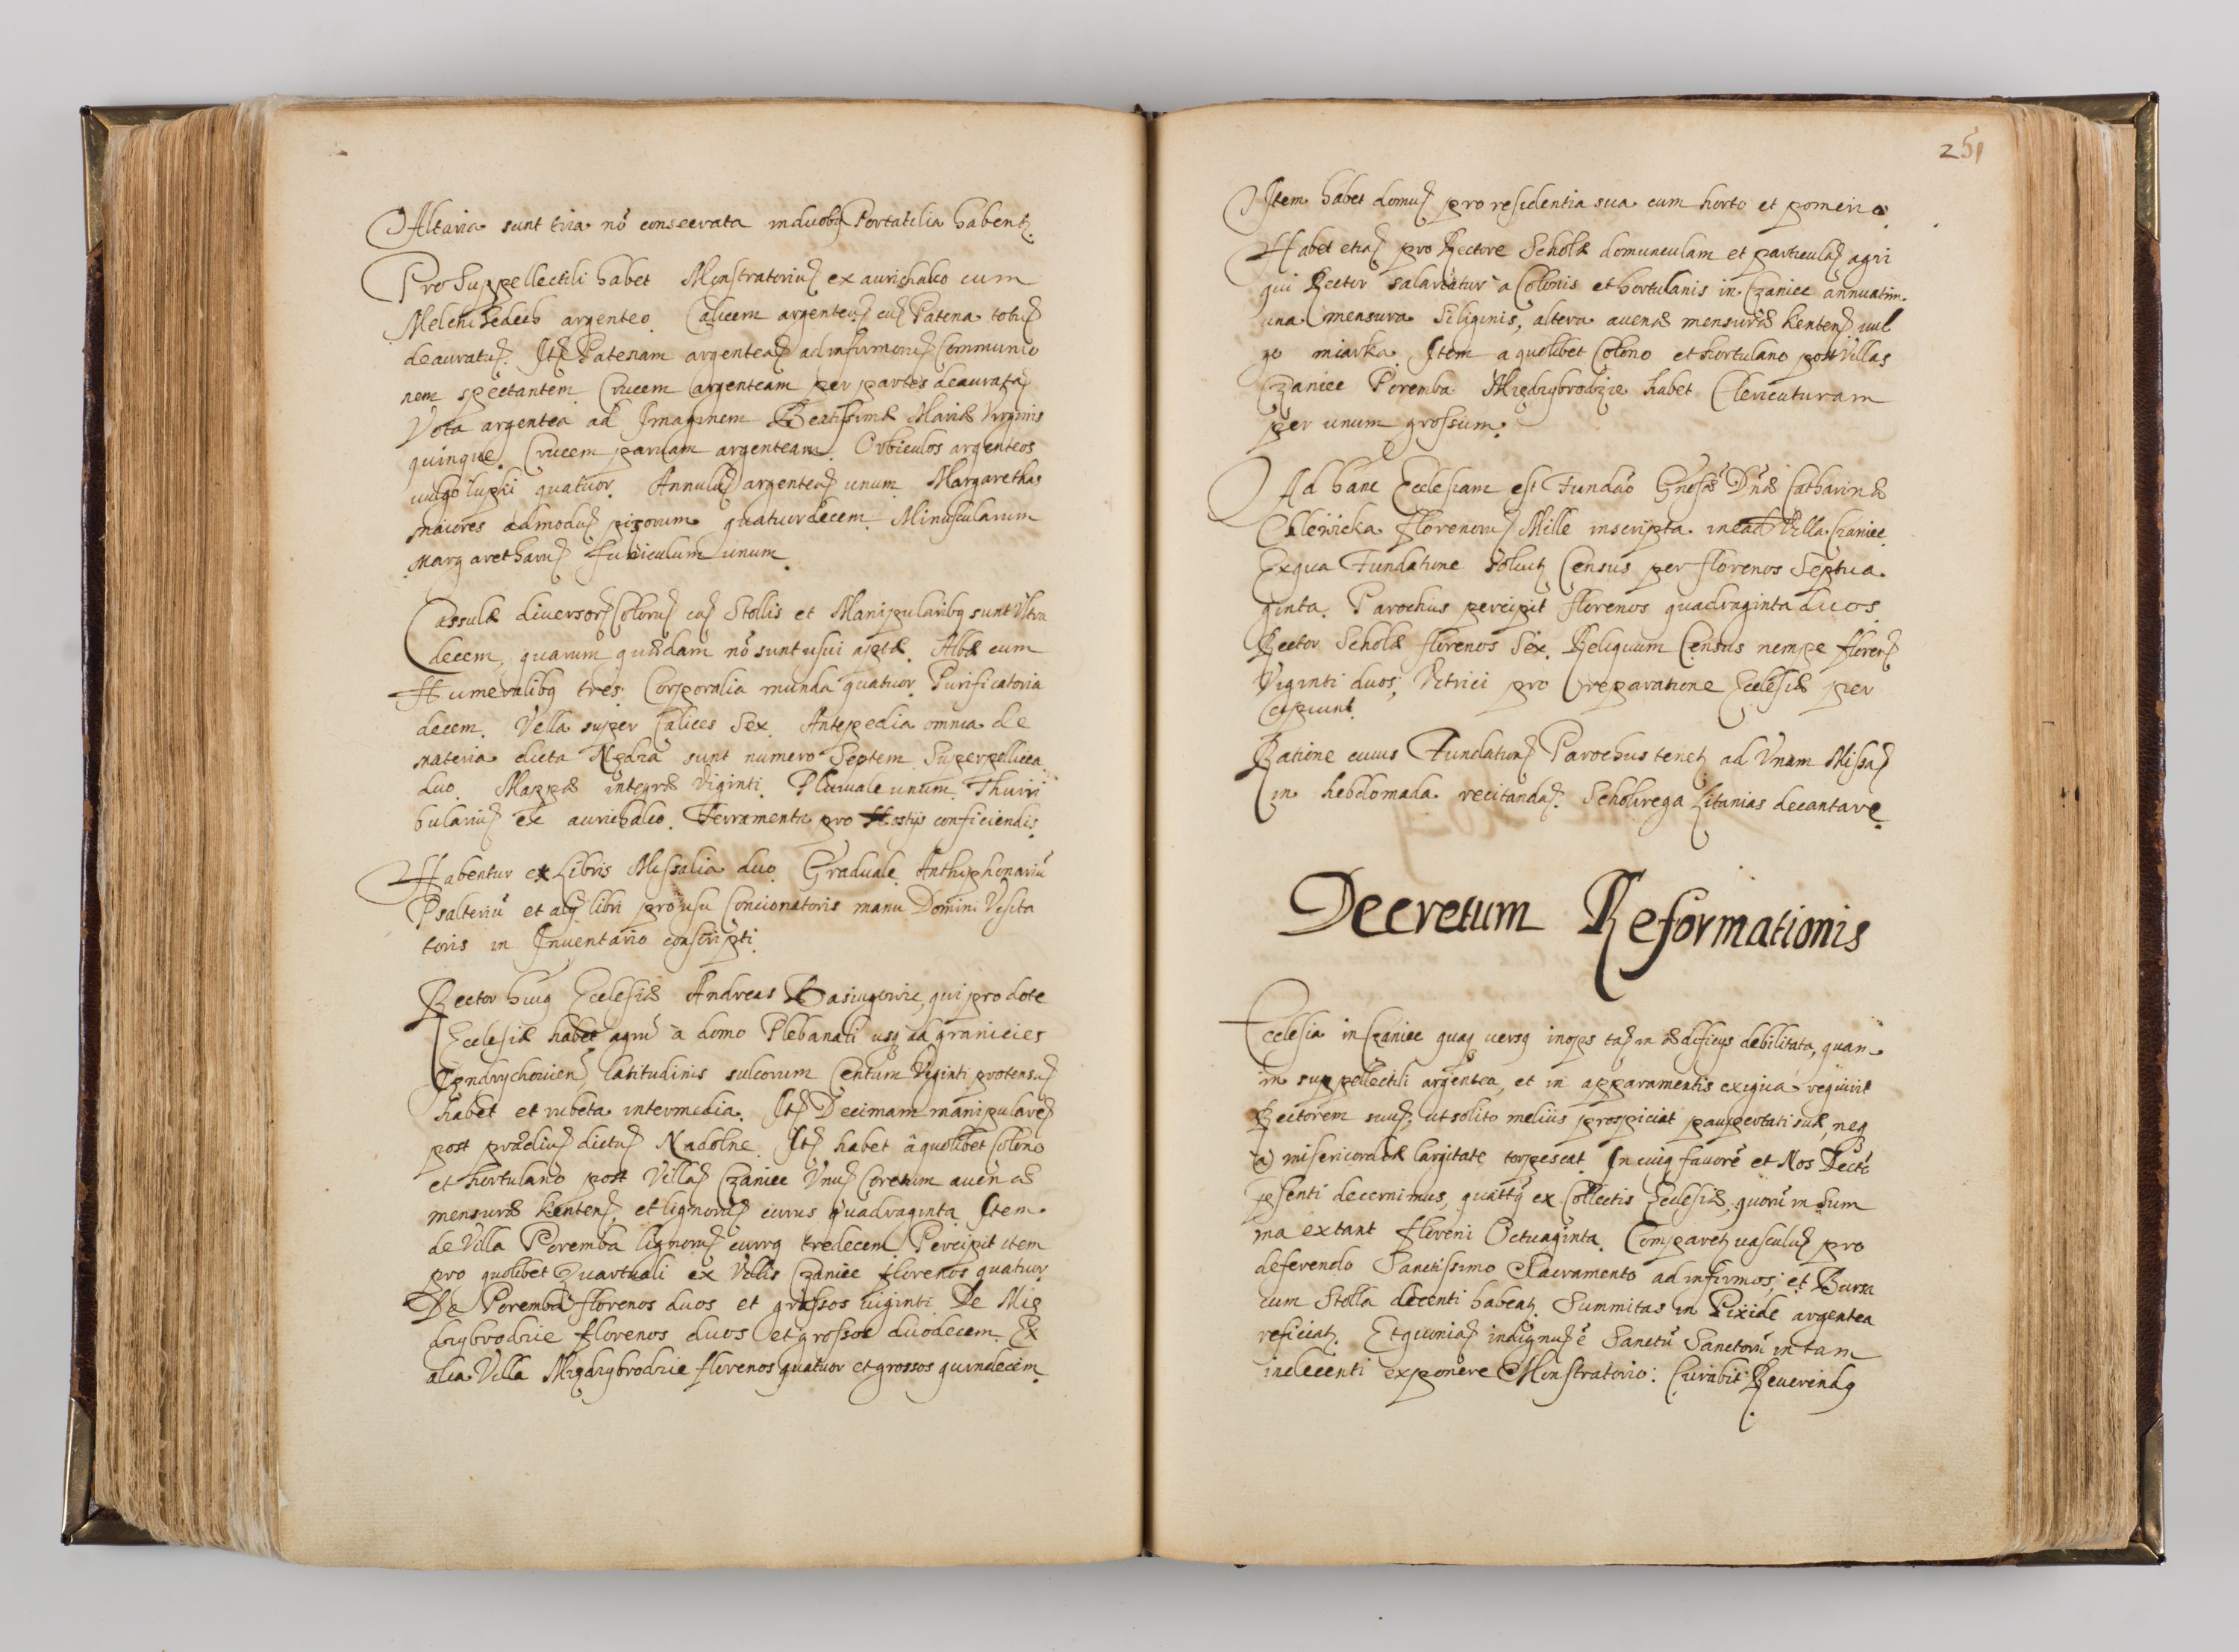 Altaria sunt tria nō consecrata in duobq Portatilia habentꝫ.
Pro Suppellectili habet Monstratoriuȝ ex aurichalco cum
Melchisedech argenteo. Calicem argenteuȝ cuȝ Patena totuȝ
deauratuȝ. Itȝ Patenam argenteaȝ ad infirmoruȝ Communio
nem spectantem Crucem argenteam per partes deaurataȝ
Vota argentea ad Imaginem Beatissimæ Mariæ Virginis
quinque. Crucem paruam argenteam. Orbiculos argenteos
uulgo lupki quatuor. Annuluȝ argenteuȝ unum Margarethas
maiores admoduȝ pisorum quatuordecem Minuscularum
Margaretharuȝ funiculum unum.
Cassulæ diuersorȝ Coloruȝ cuȝ Stollis et Manipularibq sunt Vltra
decem, quarum quædam nō sunt usui aptæ. Albæ cum
Humeralibq tres. Corporalia munda quatuor Purificatoria
decem. Vella super Calices Sex. Antepedia omnia de
materia dicta sunt numero Septem Superpellicea
duo. Mappæ integræ Viginti. Pluuiale unum. Thuri
bulariuȝ ex aurichalco. Ferramenta pro Hostijs conficiendis.
Habentur ex Libris Missalia duo. Graduale. Anthiphonariū
Psalteriū et alij libri pro usu Concionatoris manu Domini Visita
toris in Inuentario conscripti.
Rector huiq Ecclesiæ Andreas qui pro dote
Ecclesiæ habet agrū a domo Plebanali usqꝫ ad granicies
latitudinis sulcorum Centum Viginti protensuȝ
habet et rubeta intermedia. Itȝ Decimam manipulareȝ
post prædiuȝ dictuȝ Nadolne. Itȝ habet â quolibet Colono
et hortulano post Villaȝ Czaniec Vnuȝ Coretum auenæ
mensuræ kentenȝ, et lignoruȝ currus quadraginta Item
de Villa Poremba lignoruȝ currq tredecem Percipit item
pro quolibet Quartuali ex Villis Czaniec florenos quatuor
De Poremba florenos duos et grossos uiginti De Mię
dzybrodzie florenos duos et grossos duodecem. Ex
alia Villa Międzybrodzie florenos quatuor et grossos quindecem.
251
Item habet domuȝ pro residentia sua cum horto et pomerio.
Habet etiaȝ pro Rectore Scholæ domunculam et particulaȝ agri
qui Rector salariatur a Colonis et hortulanis in Czaniec annuatim.
una mensura Siliginis, altera auenæ mensuræ kentenȝ uul
go miarka. Item a quolibet Colono et hortulano post Villas
Czaniec Poremba Międzybrodzie habet Clericaturam
per unum grossum.
Ad hanc Ecclesiam est Fundaō Gnosæ Dnæ Catharinæ
florenoruȝ Mille inscripta in ead Villa Czaniec.
Ex qua Fundatione soluitꝫ Census per florenos Septua
ginta. Parochus percipit florenos quadraginta duos
Rector Scholæ florenos Sex. Reliquum Census nempe florenȝ
Viginti duos, Vitrici pro reparatione Ecclesiæ per
cipiunt.
Ratione cuius Fundationȝ Parochus tenetꝫ ad Vnam Missaȝ
in hebdomada recitandaȝ. Scholirega Litanias decantare.
Decretum Reformationis
Ecclesia in Czaniec quaq uersq inops taȝ in ædificijs debilitata, quam
in suppellectili argentea, et in apparamentis exigua requirit
Rectorem suuȝ, ut solito melius prospiciat paupertati suæ, neq
a misericordiæ largitate torpescat. In cuiq fauorē et Nos Decto
psenti decernimus, quattq ex Collectis Ecclesiæ, quorū in Sum
ma extant floreni Octuaginta. Comparetꝫ uasculuȝ pro
deferendo Sanctissimo Sacramento ad infirmos, et Bursa
cum Stolla decenti habeatꝫ. Summitas in Pixide argentea
reficiatꝫ. Et quoniaȝ indignuȝ ē Sanctū Sanctorū in tam
indecenti exponere Monstratorio: Curabit Reuerendq